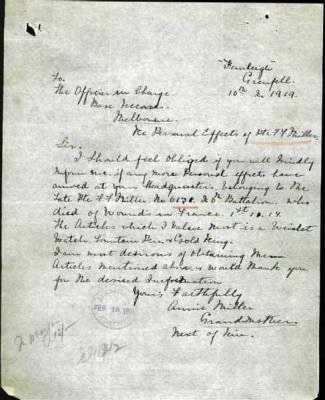 "Fernleigh"
Grenfell.
10th 2. 1919.
To.
The Officer in Charge
Base Records.
Melbourne.
Re Personal Effects of Pte F J Miller
Sir.
I should feel obliged if you will kindly
inform me, if any more Personal effects have
arrived at your Headquarters, belonging to the
Late Pte F J Miller No 6131. Bn Battalion. Who
died of Wounds in France 1st 10. 17.
The Articles which I value most is a Wristlet
Watch Fountain Pen & Gold Ring.
I am most desirous of obtaining these
Articles mentioned above & would thank you
for the desired Information
Yours Faithfully
Annie Miller
Grandmother
Next of Kin.
FEB